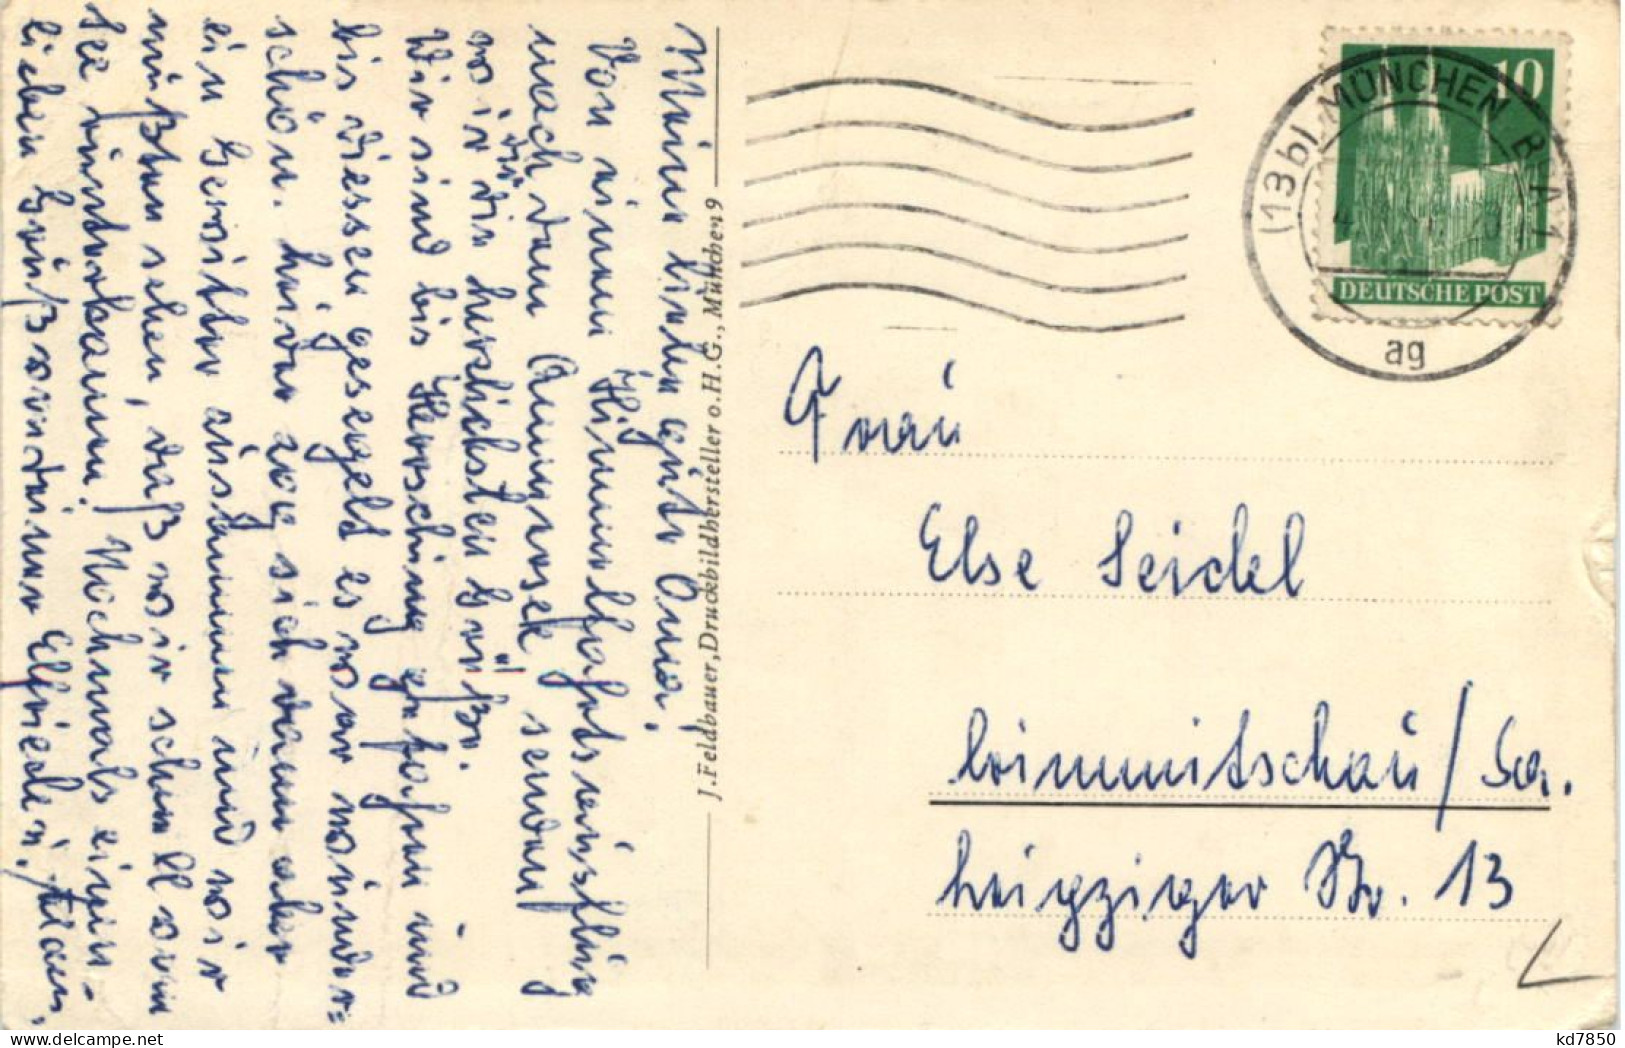 Meine liebe gute Oma!
Von einem Himmelfahrtsausflug
nach dem Ammersee senden
wir dir die herzlichsten Grüße.
Wir sind bis Herrsching gefahren und
bis Diessen gesegelt es war wunder=
schön. Leider zog sich dann aber
ein Gewitter zusammen und wir
mußten sehen, daß wir schnell vom
See runterkamen. Nochmals einen
lieben Gruß von deiner Elfriede u.
J. Feldbauer, Druckbildhersteller o.H.G., München 9
(13b) MÜNCHEN BZA 1
ag
10
DEUTSCHE POST
Frau
Else Seidel
Crimmitschau/Sa.
Leipziger Str. 13
kd7850